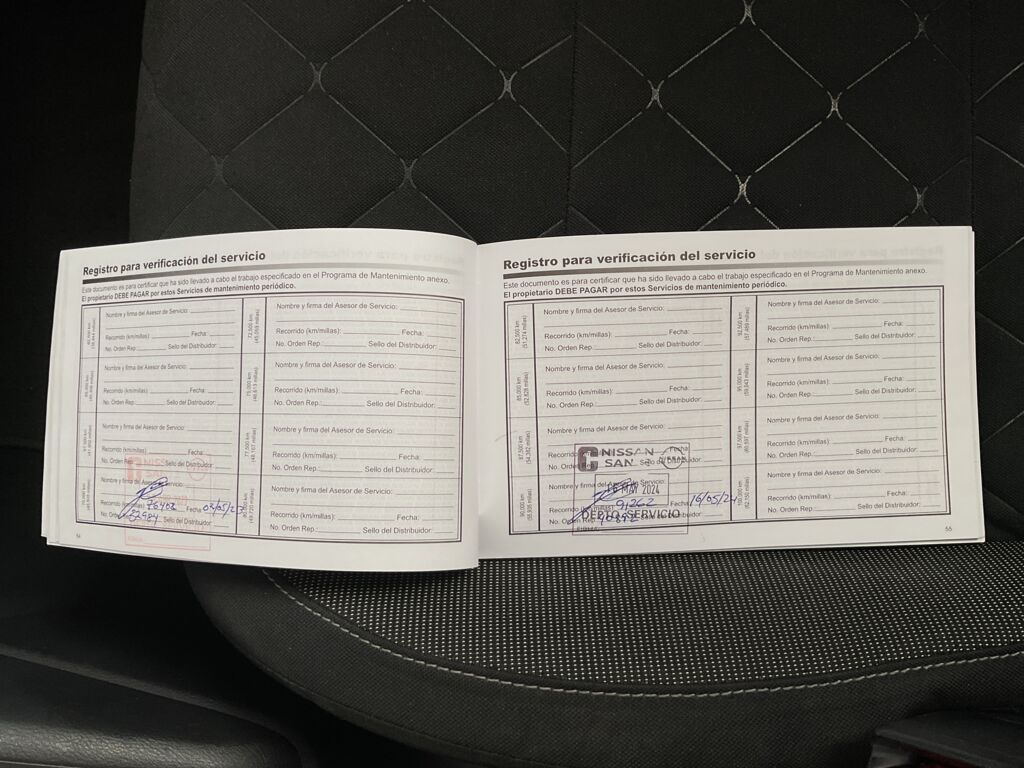 Registro para verificación del servicio
Este documento es para certificar que ha sido llevado a cabo el trabajo especificado en el Programa de Mantenimiento anexo.
El propietario DEBE PAGAR por estos Servicios de mantenimiento periódico.
Nombre y firma del Asesor de Servicio:
Recorrido (km/millas): Fecha:
No. Orden Rep.: Sello del Distribuidor:
72,500 km
Nombre y firma del Asesor de Servicio:
Recorrido (km/millas): Fecha:
No. Orden Rep.: Sello del Distribuidor:
Nombre y firma del Asesor de Servicio:
Recorrido (km/millas): Fecha:
No. Orden Rep.: Sello del Distribuidor:
75,000 km
Nombre y firma del Asesor de Servicio:
Recorrido (km/millas): Fecha:
No. Orden Rep.: Sello del Distribuidor:
Nombre y firma del Asesor de Servicio:
Recorrido (km/millas): Fecha:
No. Orden Rep. Sello del Distribuidor:
77,500 km
Nombre y firma del Asesor de Servicio:
Recorrido (km/millas): Fecha:
No. Orden Rep.: Sello del Distribuidor:
Nombre y firma del Asesor de Servicio:
Recorrido (km/millas): 76402 Fecha:
No. Orden Sello del Distribuidor:
Nombre y firma del Asesor de Servicio:
Recorrido (km/millas): Fecha:
No. Orden Rep.: Sello del Distribuidor:
54
Registro para verificación del servicio
Este documento es para certificar que ha sido llevado a cabo el trabajo especificado en el Programa de Mantenimiento anexo.
El propietario DEBE PAGAR por estos Servicios de mantenimiento periódico.
82,500 km
(51,274 millas)
Nombre y firma del Asesor de Servicio:
Recorrido (km/millas): Fecha:
No. Orden Rep.: Sello del Distribuidor:
92,500 km
(57,489 millas)
Nombre y firma del Asesor de Servicio:
Recorrido (km/millas): Fecha:
No. Orden Rep.: Sello del Distribuidor:
85,000 km
(52,828 millas)
Nombre y firma del Asesor de Servicio:
Recorrido (km/millas): Fecha:
No. Orden Rep.: Sello del Distribuidor:
95,000 km
(59,043 millas)
Nombre y firma del Asesor de Servicio:
Recorrido (km/millas): Fecha:
No. Orden Rep.: Sello del Distribuidor:
87,500 km
(54,382 millas)
Nombre y firma del Asesor de Servicio:
Recorrido (km/millas): Fecha:
No. Orden
NISSAN
SAN
97,500 km
(60,597 millas)
Nombre y firma del Asesor de Servicio:
Recorrido (km/millas): Fecha:
No. Orden Rep.: Sello del Distribuidor:
90,000 km
Nombre y firma del Asesor de Servicio:
16 MAY 2024
Recorrido (km/millas): 91262 Fecha: 16/05/24
No. Orden Rep. Distribuidor:
DEPTO. SERVICIO
100,000 km
(62,150 millas)
Nombre y firma del Asesor de Servicio:
Recorrido (km/millas): Fecha:
No. Orden Rep.: Sello del Distribuidor:
55